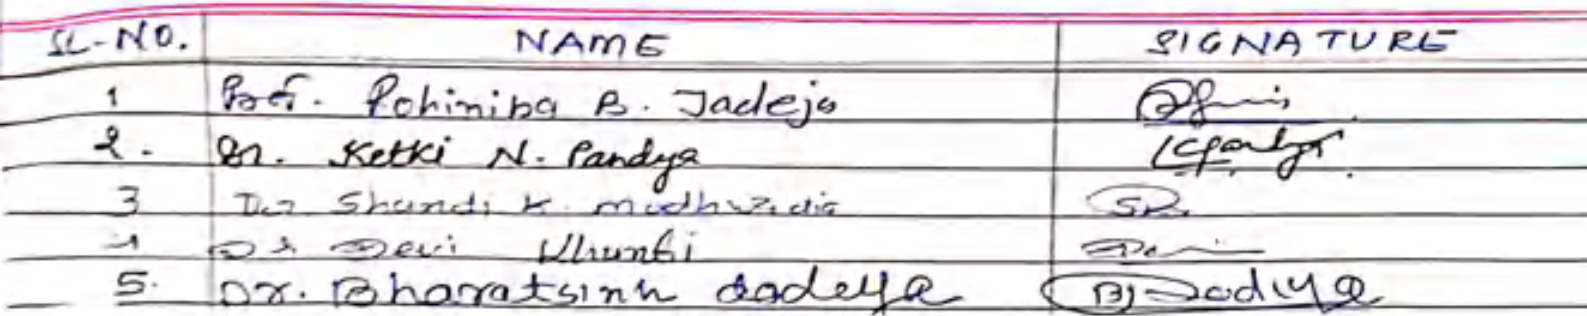 SL-NO. NAME SIGNATURE
1 Prof. Rohiniba B. Jadeja
2. Dr. Ketki N. Pandya KPandya
3 Dr Shandi K. modhvadia SR.
4 Dr Devi Khunti Devi
5. Dr. Bharatsinh dadeya